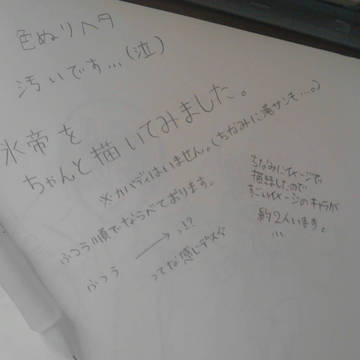 色ぬりヘタ
汚いです…(泣)
氷帝を
ちゃんと描いてみました。
※カバディはいません。(ちなみに滝サンも…。)
ふつう順でならべております。
ふつう → っえ!?
ってな感じデス
ちなみにイメージで
描きましたので
すごいイメージのキャラが
約2人います。
…